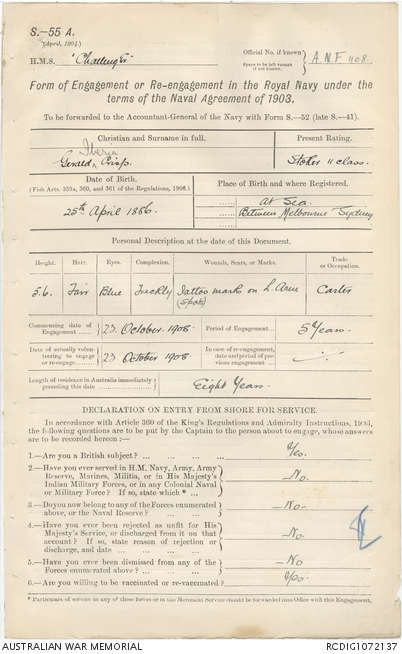 S.—55 A.
(April, 1904.)
H.M.S. 'Challenger'
Official No. if known
Space to be left vacant if not known.
A.N.F 1108.
Form of Engagement or Re-engagement in the Royal Navy under the
terms of the Naval Agreement of 1903.
To be forwarded to the Accountant-General of the Navy with Form S.—52 (late S.—41).
Christian and Surname in full.
Present Rating.
Iberia
Gerald, Crisp.
Stoker II class.
Date of Birth.
(Fish Arts. 359a, 360, and 361 of the Regulations, 1906.)
Place of Birth and where Registered.
25th April 1886.
At Sea.
Between Melbourne & Sydney
Personal Description at the date of this Document.
Height. Hair. Eyes. Complexion. Wounds, Scars, or Marks. Trade or Occupation.
5.6. Fair Blue Freckly Tattoo marks on L. Arm Carter
(Spots)
Commencing date of Engagement 23 October 1908 Period of Engagement 5 Years.
Date of actually volunteering to engage or re-engage 23 October 1908 In case of re-engagement, date and period of previous engagement
Length of residence in Australia immediately preceding this date Eight Years.
DECLARATION ON ENTRY FROM SHORE FOR SERVICE.
In accordance with Article 360 of the King's Regulations and Admiralty Instructions, 1906,
the following questions are to be put by the Captain to the person about to engage, whose answers
are to be recorded herein:—
1.—Are you a British subject? ... Yes.
2.—Have you ever served in H.M. Navy, Army, Army
Reserve, Marines, Militia, or in His Majesty's
Indian Military Forces, or in any Colonial Naval
or Military Force? If so, state which * ... No.
3.—Do you now belong to any of the Forces enumerated
above, or the Naval Reserve? ... —No—
4.—Have you ever been rejected as unfit for His
Majesty's Service, or discharged from it on that
account? If so, state reason of rejection or
discharge, and date ... —No.
5.—Have you ever been dismissed from any of the
Forces enumerated above? ... —No
6.—Are you willing to be vaccinated or re-vaccinated? Yes.
* Particulars of service in any of these forces or in the Merchant Service should be forwarded into Office with this Engagement.
AUSTRALIAN WAR MEMORIAL
RCDIG1072137